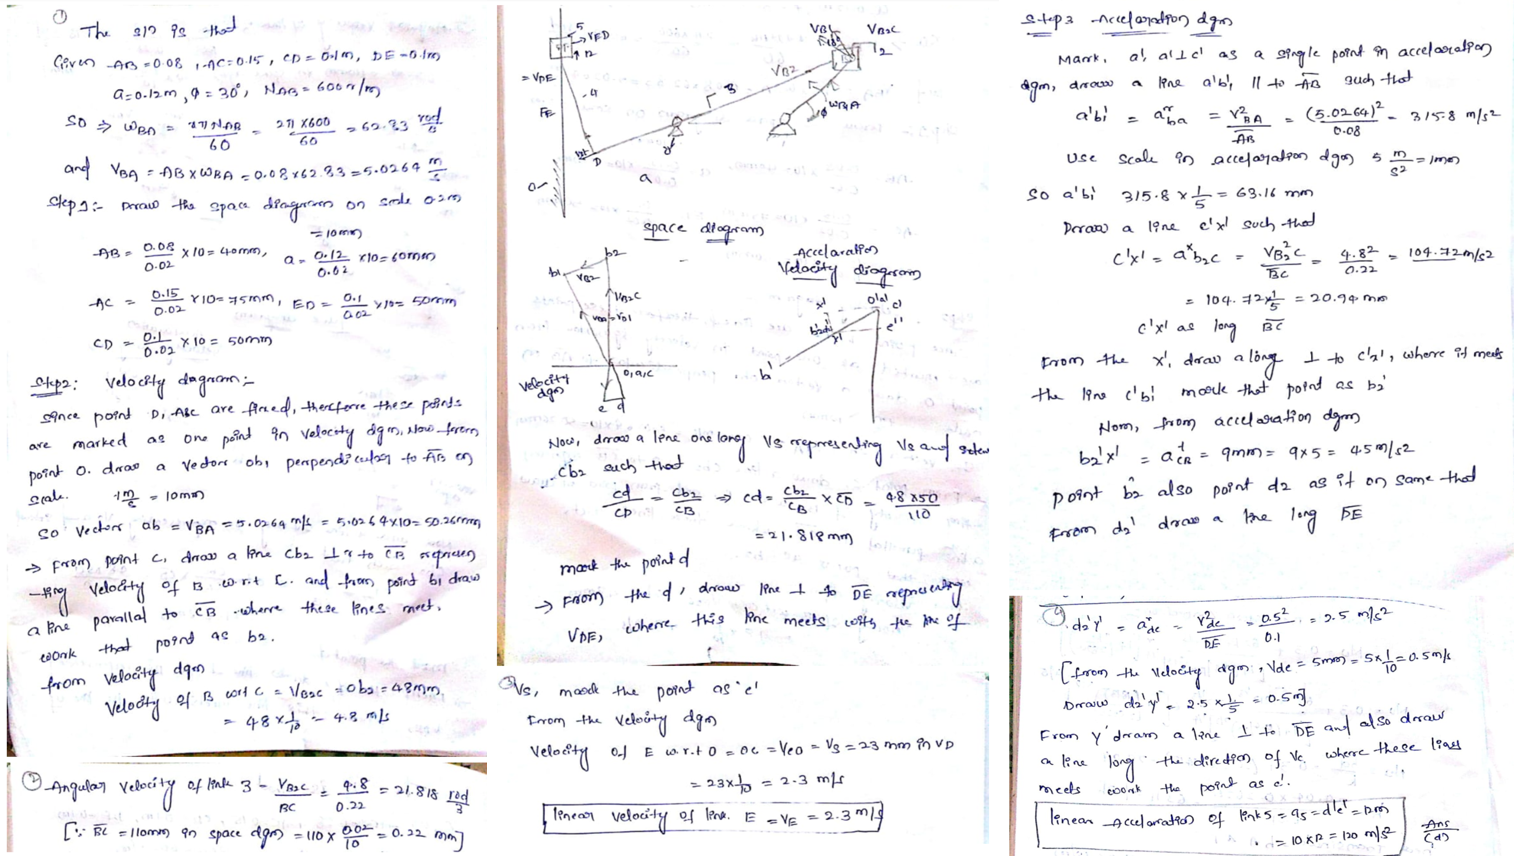 ①
The sln is that
Given AB=0.08, AC=0.15, CD=0.1m, DE=0.1m
a=0.12m, φ=30°, NAB=600 r/m
SO ⇒ ωBA = 2πNAB/60 = 2π×600/60 = 62.83 rad/s
and VBA = AB×ωBA = 0.08×62.83 = 5.0264 m/s
Step1:- Draw the space diagram on scale 0.2m
= 10mm
AB = 0.08/0.02 ×10 = 40mm, a = 0.12/0.02 ×10 = 60mm
AC = 0.15/0.02 ×10 = 75mm, ED = 0.1/0.02 ×10 = 50mm
CD = 0.1/0.02 ×10 = 50mm
Step2: Velocity diagram:-
Since point D, A&C are fixed, therefore these points
are marked as one point in velocity dgm, Now from
point O. draw a vector ob1 perpendicular to AB on
scale. 1 m/s = 10mm
So Vector ab = VBA = 5.0264 m/s = 5.0264×10 = 50.26mm
→ From point C, draw a line Cb2 ⊥r to CB represen
-ting velocity of B w.r.t C. and from point b1 draw
a line parallel to CB where these lines meet.
work that point as b2.
from velocity dgm
Velocity of B wrt C = VB2C = Ob2 = 48mm
= 48 × 1/10 = 4.8 m/s
② Angular velocity of link 3 = VB2C/BC = 4.8/0.22 = 21.818 rad/s
[∵ BC = 110mm in space dgm = 110 × 0.02/10 = 0.22 mm]
5
VED
VB1
VB2C
2
12
= VDE
VB2
3
4
FE
ωBA
φ
D
a
space diagram
b2
b1
VB2
VB2C
O,a,c
Velocity
dgm
e d
Acceleration
Velocity diagram
x'
o'a' c'
e''
x'
b'
Now, draw a line one long Vs representing Vs and
Cb2 such that
cd/CD = Cb2/CB ⇒ cd = Cb2/CB × CD = 48×50/110
= 21.818mm
mark the point d
→ From the d, draw line ⊥ to DE representing
VDE, where this line meets with the line of
③ Vs, mark the point as 'e'
From the velocity dgm
Velocity of E w.r.t O = oc = Veo = Vs = 23 mm in VD
= 23×1/10 = 2.3 m/s
linear velocity of link. E = VE = 2.3 m/s
Step3 Acceleration dgm
Mark. a', a'⊥c' as a single point in acceleration
dgm, draw a line a'b'1 || to AB such that
a'b'1 = arba = V²BA/AB = (5.0264)²/0.08 = 315.8 m/s2
Use scale in acceleration dgm 5 m/s² = 1mm
So a'b'1 315.8 × 1/5 = 63.16 mm
Draw a line c'x' such that
c'x' = arb2c = VB2²C/BC = 4.8²/0.22 = 104.72 m/s2
= 104.72×1/5 = 20.94 mm
c'x' as long BC
From the x', draw along ⊥ to c'x', where it meets
the line c'b'1 mark that point as b2'
Nom, from acceleration dgm
b2'x' = atCB = 9mm = 9×5 = 45 m/s2
point b2 also point d2 as it on same that
From d2' draw a line long DE
④
d2'y' = ardc = V²dc/DE = 0.5²/0.1 = 2.5 m/s²
[from the velocity dgm, Vdc = 5mm = 5×1/10 = 0.5 m/s
Draw d2'y' = 2.5 × 1/5 = 0.5m]
From y' dram a line ⊥ to DE and also draw
a line long the direction of Vc where these lines
meets work the point as e'.
linear Acceleration of link5 = a5 = d'e' =
= 10×12 = 120 m/s²
Ans
(d)